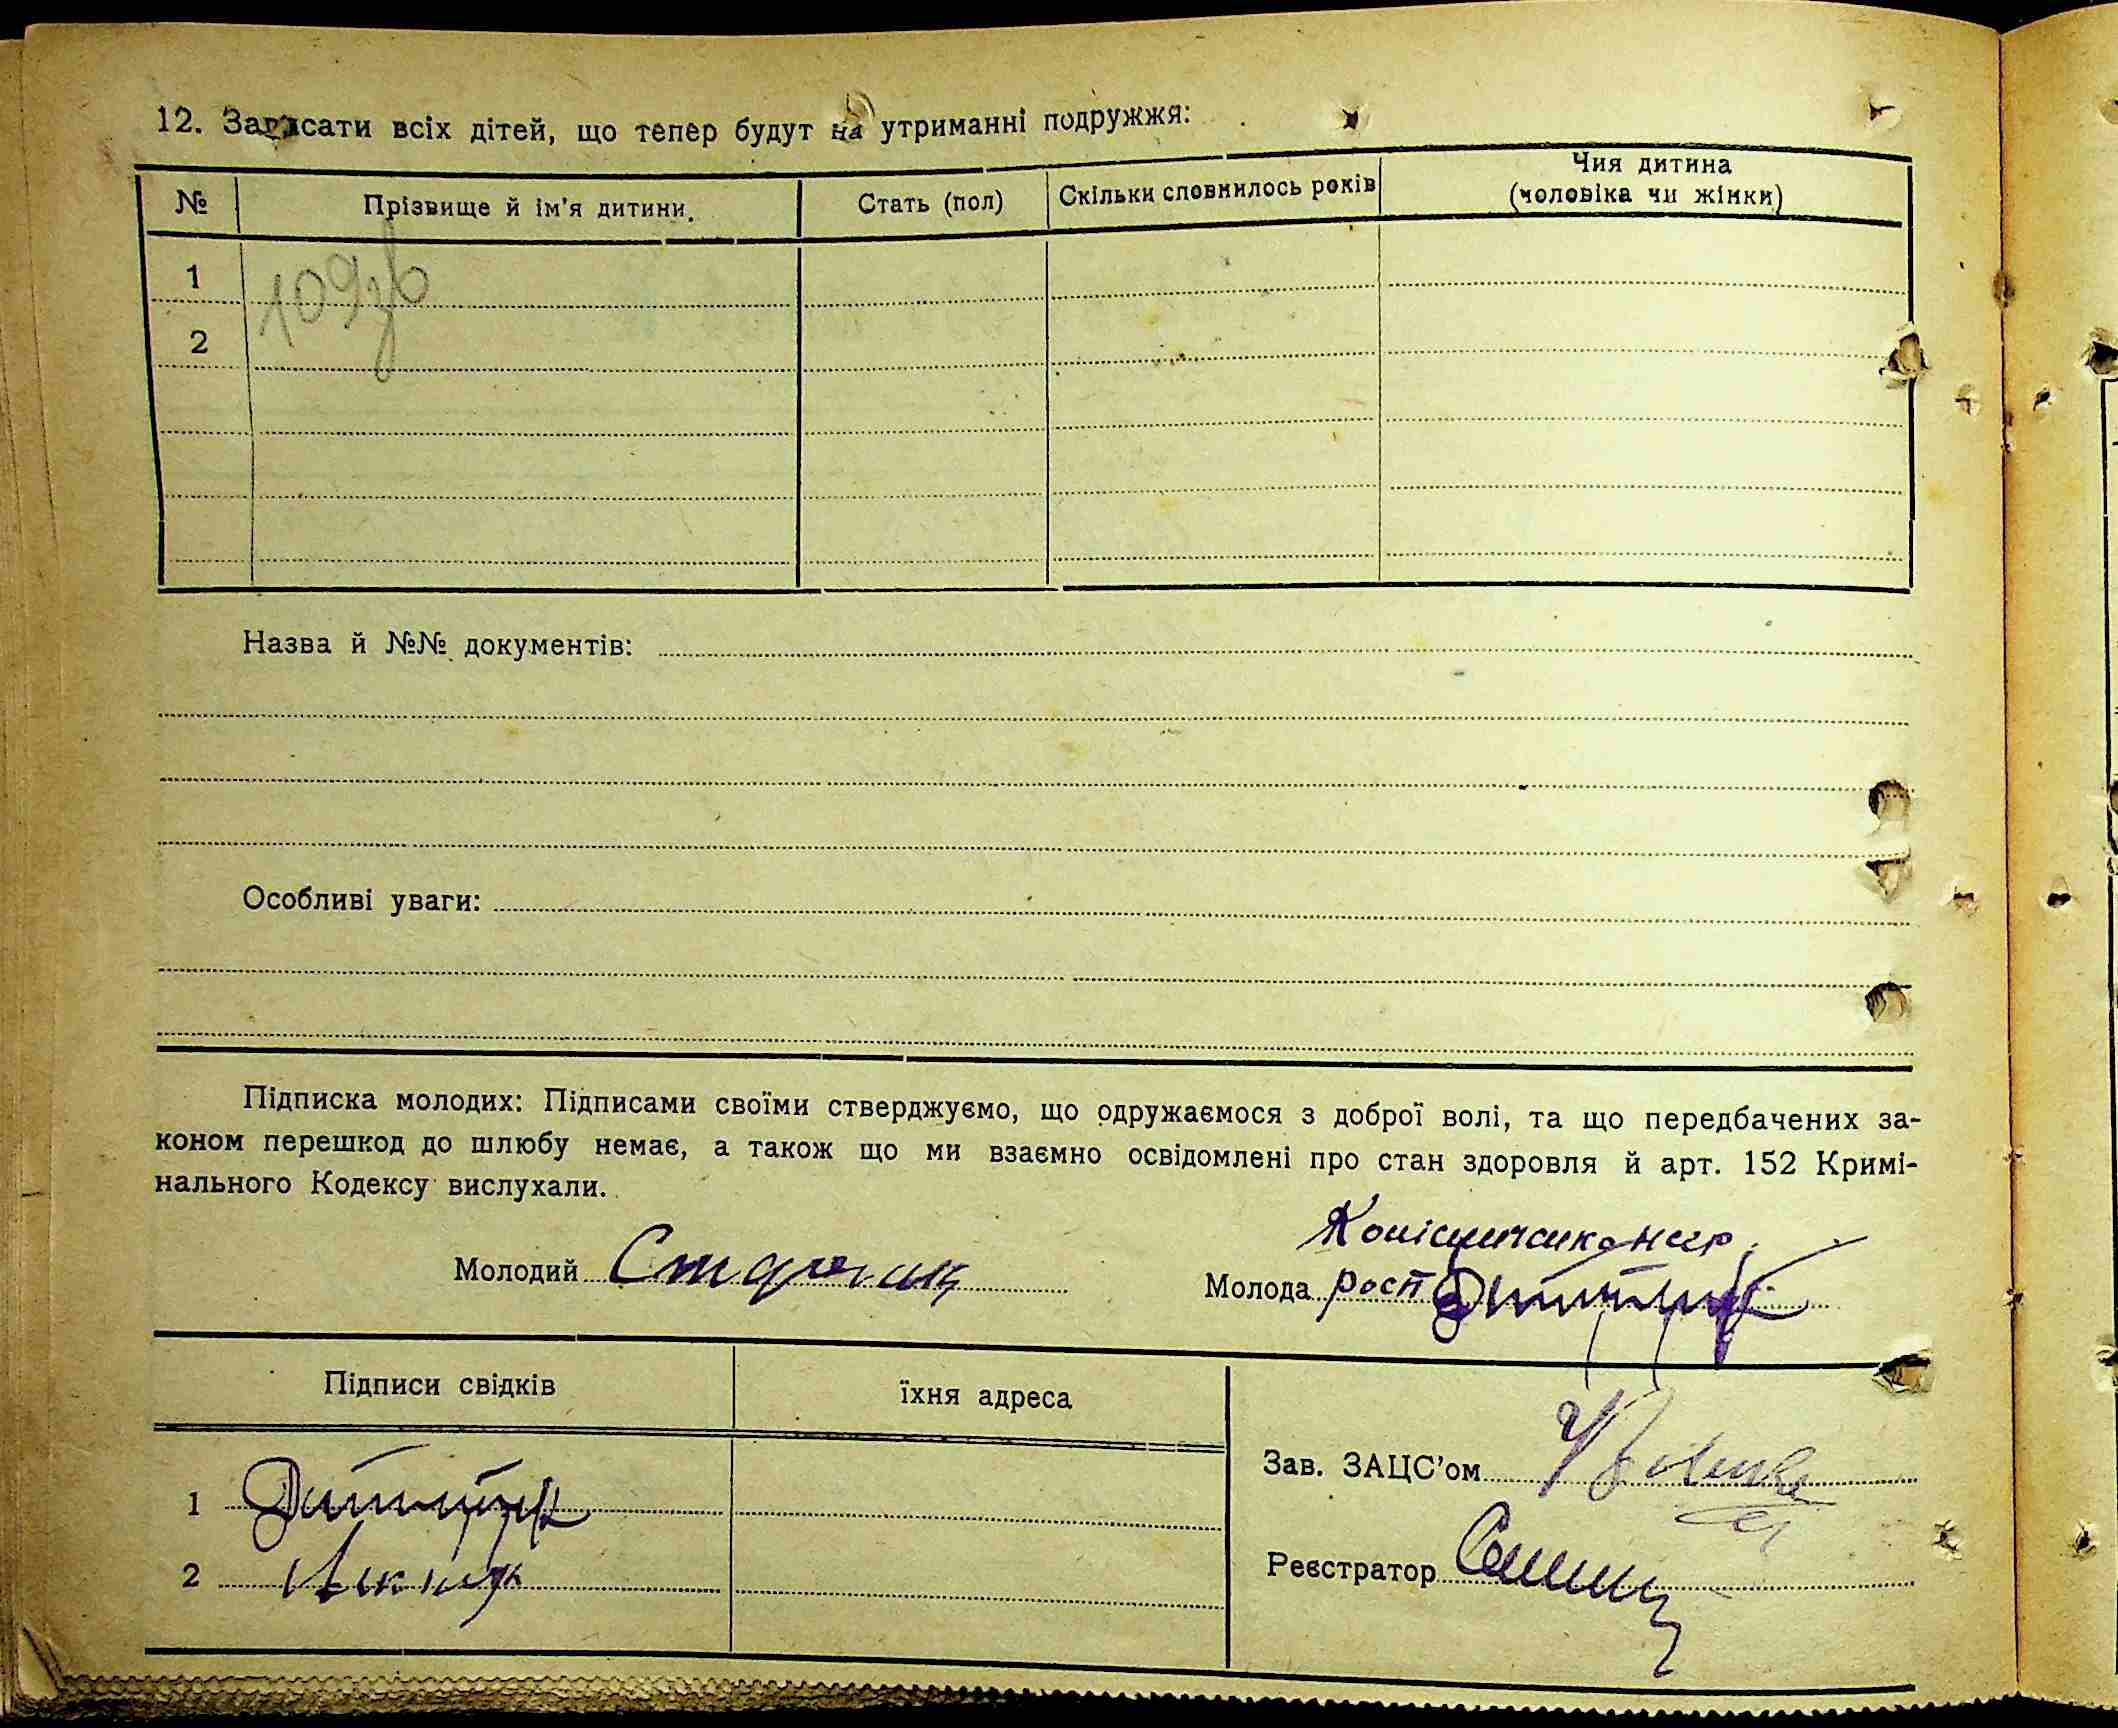 12. Записати всіх дітей, що тепер будут на утриманні подружжя:
№ Прізвище й ім'я дитини. Стать (пол) Скільки сповнилось років Чия дитина
(чоловіка чи жінки)
1 109зв
2
Назва й №№ документів:
Особливі уваги:
Підписка молодих: Підписами своїми стверджуємо, що одружаємося з доброї волі, та що передбачених за-
коном перешкод до шлюбу немає, а також що ми взаємно освідомлені про стан здоровля й арт. 152 Кримі-
нального Кодексу вислухали.
Молодий
Молода
Підписи свідків їхня адреса
1
2
Зав. ЗАЦС'ом
Реєстратор